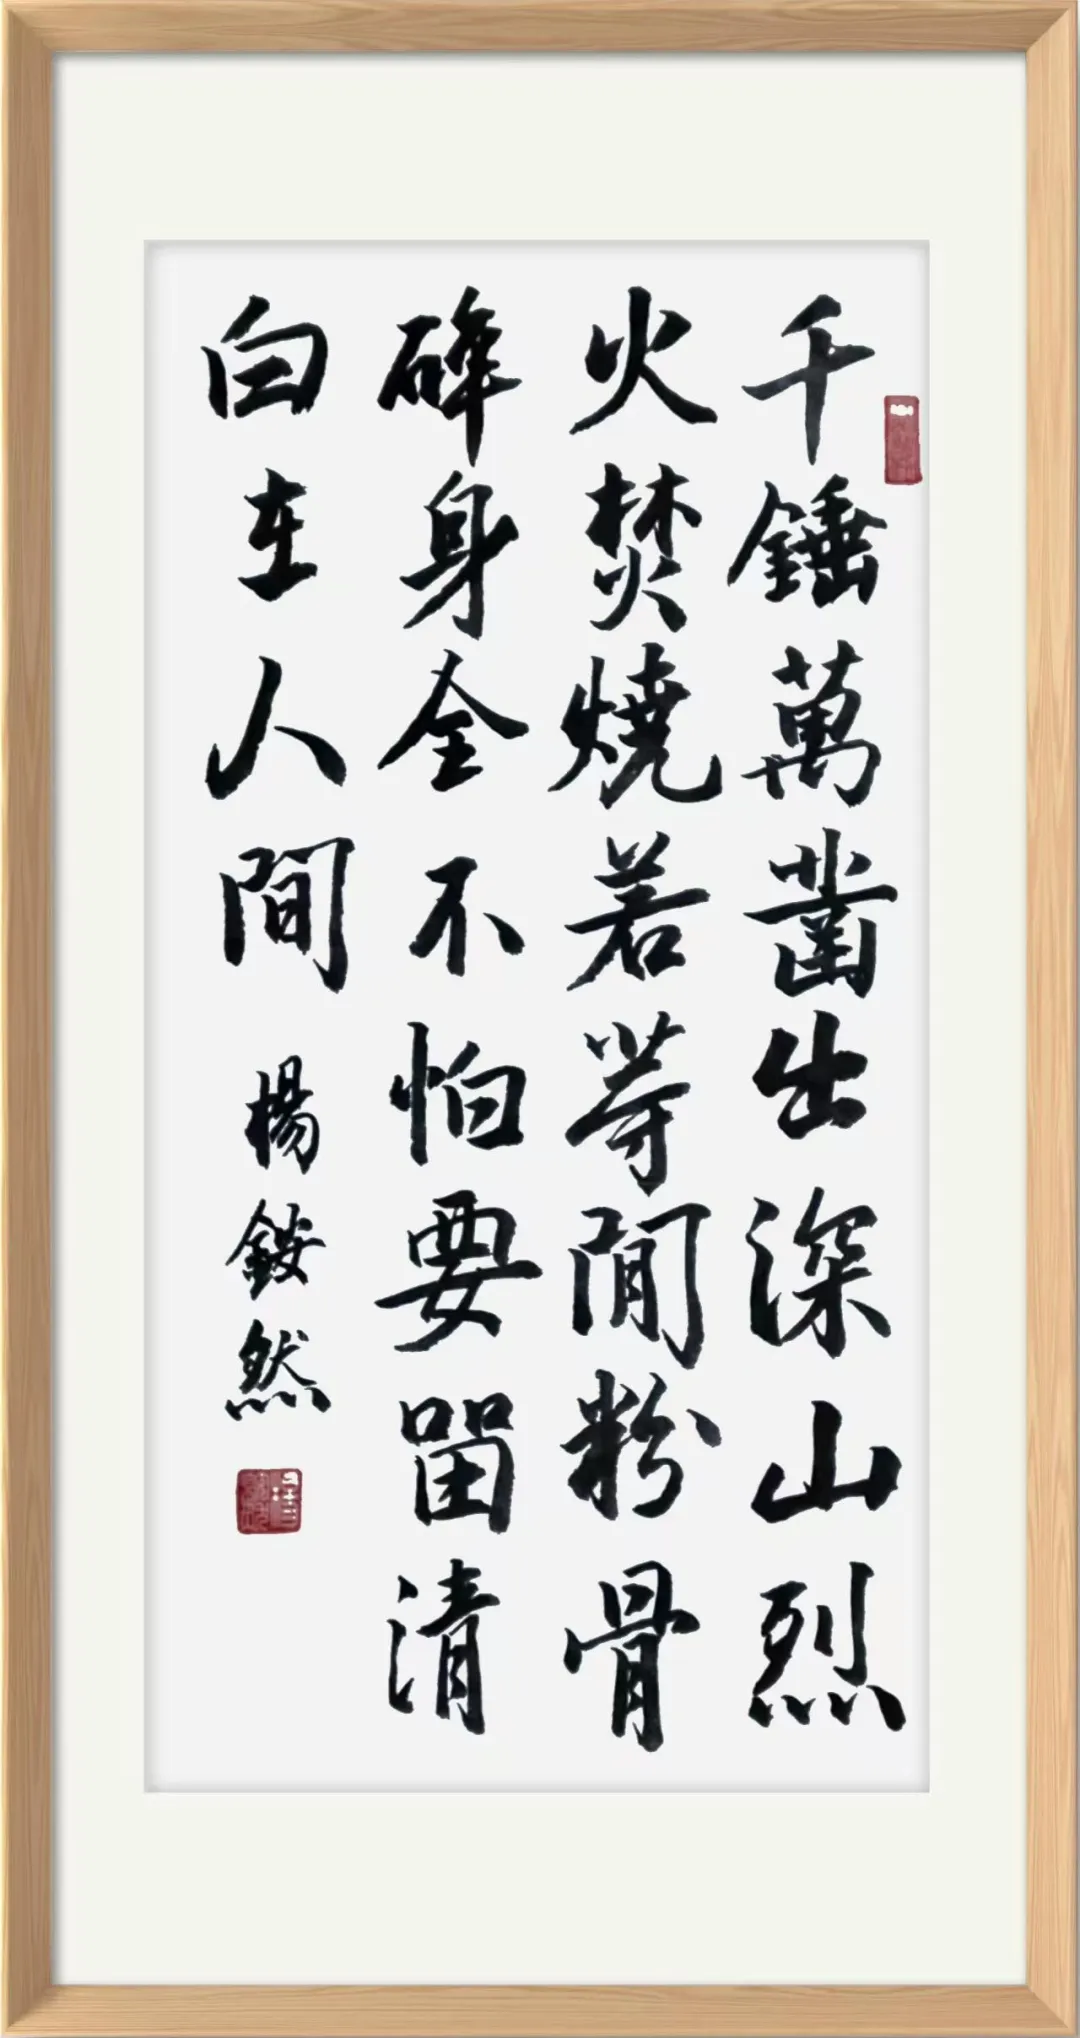 千錘萬凿出深山烈
火焚燒若等閒粉骨
碎身全不怕要留清
白在人間
楊銨然